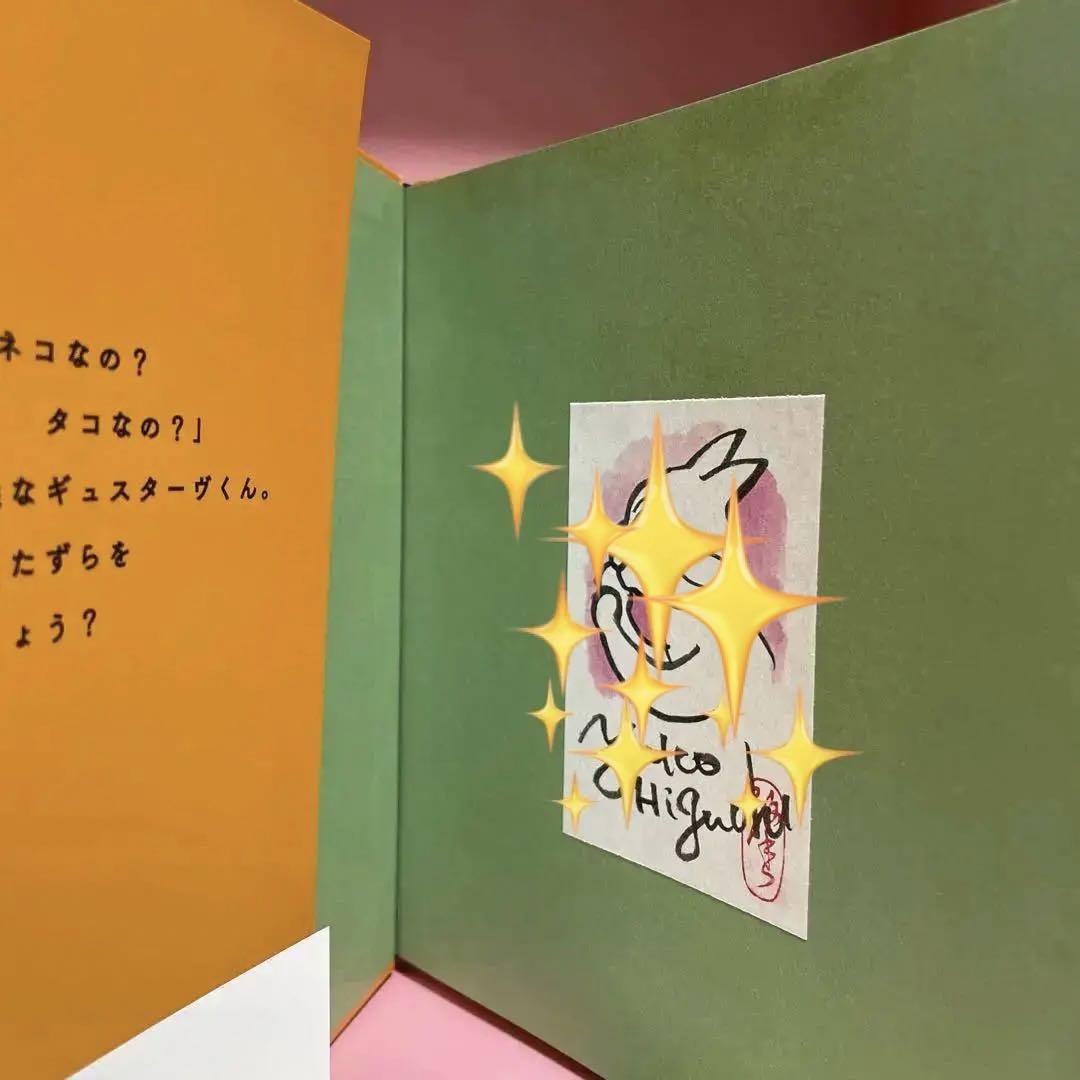 ネコなの？
タコなの？」
なギュスターヴくん。
たずらを
ょう？
Higu